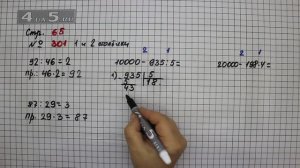 4АВ5.RU
Стр. 65
№ 301 1 и 2 столбики
92:46=2
пр.: 46·2=92
87:29=3
пр. 29·3=87
2 1
10000-935:5=
1) 935|5
5 |18
43
2 1
20000-198·4=